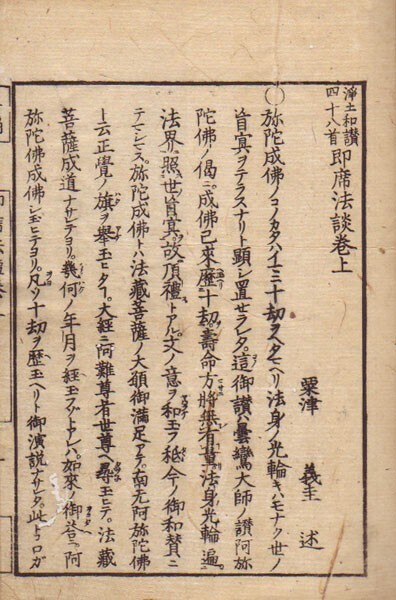 淨土和讃
四十八首
即席法談巻上
粟津 義圭 述
〇弥陀成佛ノコノカタハイマニ十劫ヲヘタマヘリ法身ノ光輪キハモナク世ノ
盲冥ヲテラスナリト顕シ置セラレタ。這御讃ハ曇鸞大師ノ讃阿弥
陀佛ノ偈ニ。成佛已來歴十劫。壽命方將無有量。法身光輪遍
法界。照世盲冥故頂禮トアル。文ノ意ヲ和玉ヲ。秖今ノ御和賛ニ
テマシマス。弥陀成佛トハ法藏菩薩ノ大願御満足アテ。南无阿弥陀佛
ト云正覺ノ旗ヲ擧玉ヒタ
大経ニ阿難尊者世尊ヘ尋玉ヒテ。法藏
菩薩成道ナサレテヨリ。幾何ノ年月ヲ経玉
如來ノ御荅ニ。阿
弥陀佛成佛シ玉ヒテヨリ。凡ソ十劫ヲ歴玉ヘリト御演説ナサレタ。此トコロガ